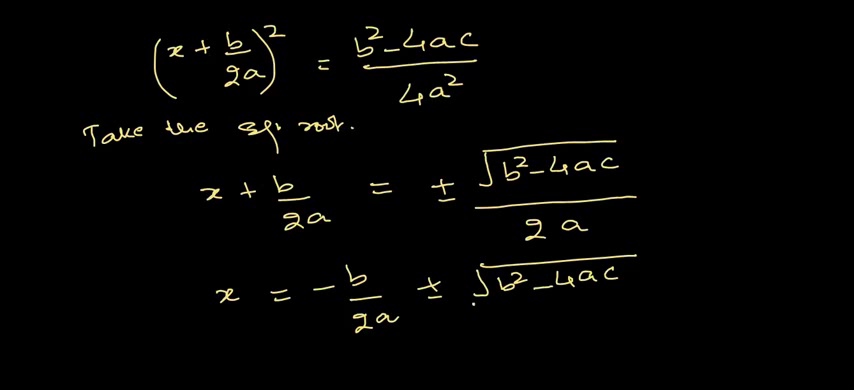 (x + b/2a)² = b² - 4ac / 4a²
Take the sq. root.
x + b/2a = ± √b² - 4ac / 2a
x = - b/2a ± √b² - 4ac